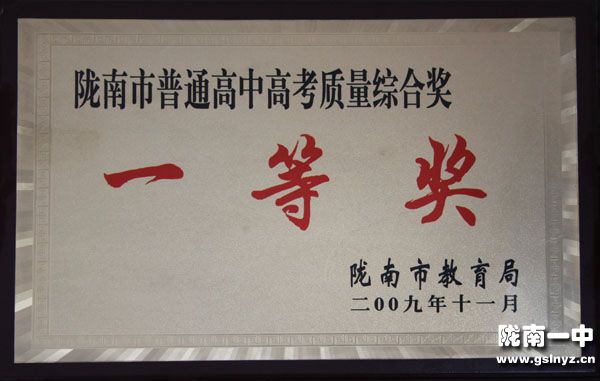 陇南市普通高中高考质量综合奖
一等奖
陇南市教育局
二00九年十一月
陇南一中
www.gslnyz.cn